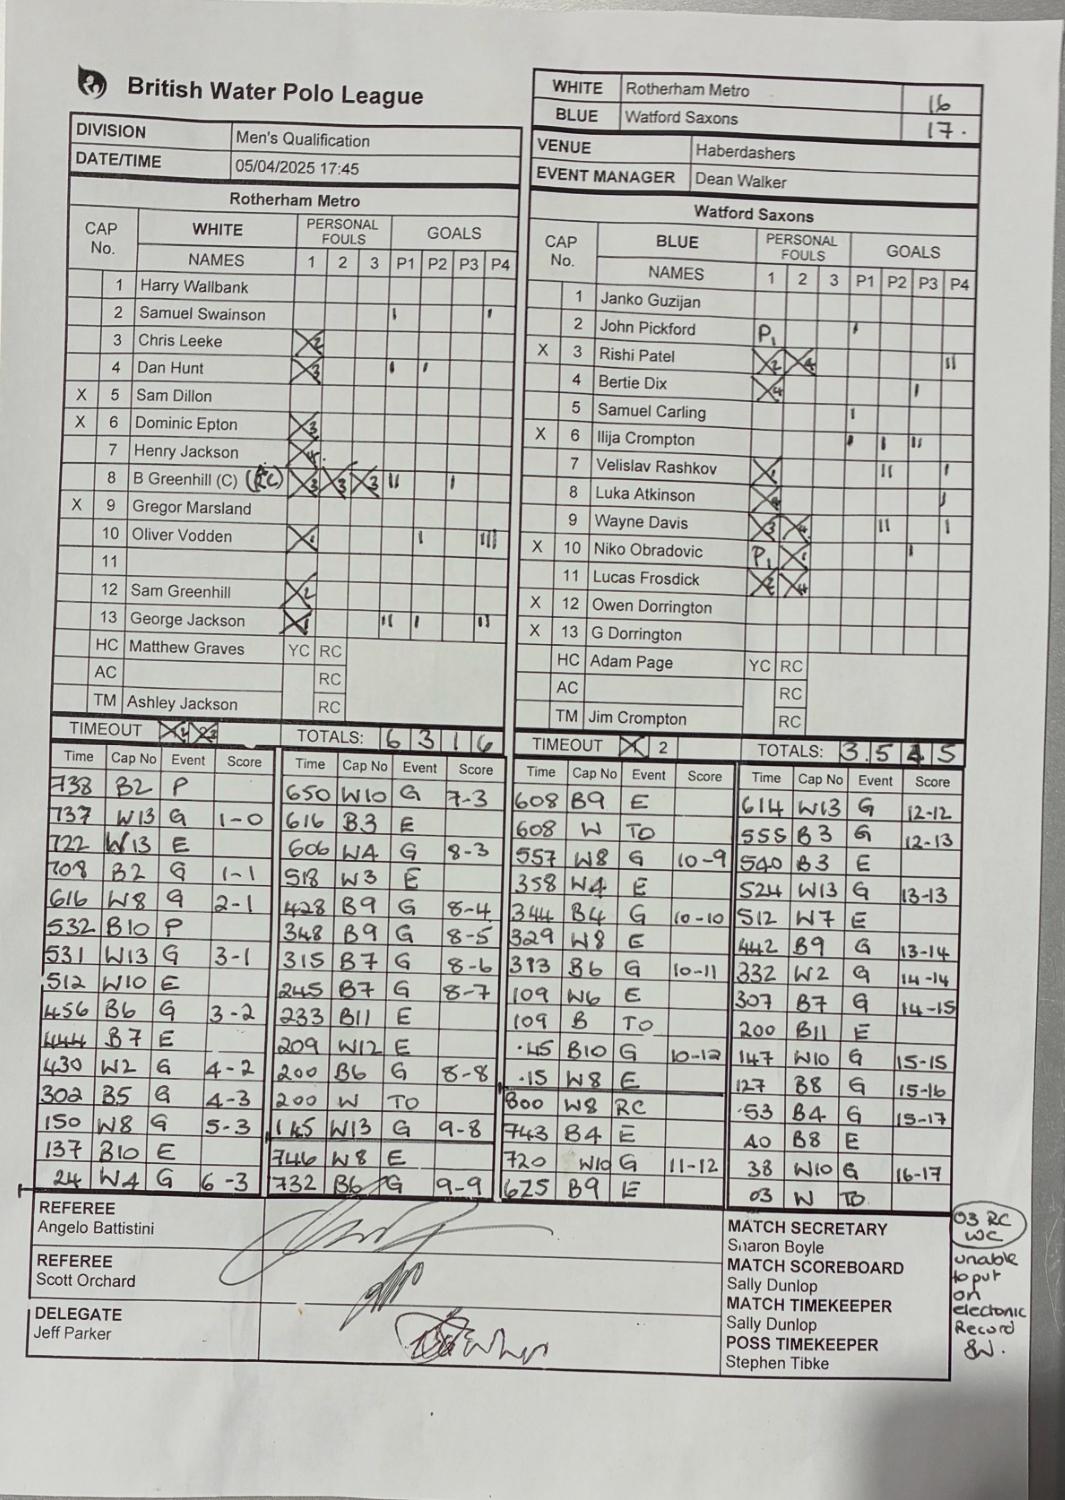 British Water Polo League
WHITE Rotherham Metro 16
BLUE Watford Saxons 17.
DIVISION Men's Qualification
DATE/TIME 05/04/2025 17:45
VENUE Haberdashers
EVENT MANAGER Dean Walker
Rotherham Metro
CAP No. WHITE PERSONAL FOULS GOALS
NAMES 1 2 3 P1 P2 P3 P4
1 Harry Wallbank
2 Samuel Swainson I I
3 Chris Leeke X2
4 Dan Hunt X3 I I
X 5 Sam Dillon
X 6 Dominic Epton X3
7 Henry Jackson X4
8 B Greenhill (C) X3 X3 X3 II I
X 9 Gregor Marsland
10 Oliver Vodden X1 I III
11
12 Sam Greenhill X2
13 George Jackson X1 II I II
HC Matthew Graves YC RC
AC RC
TM Ashley Jackson RC
TIMEOUT TOTALS: 6 3 1 6
Watford Saxons
CAP No. BLUE PERSONAL FOULS GOALS
NAMES 1 2 3 P1 P2 P3 P4
1 Janko Guzijan
2 John Pickford P1 I
X 3 Rishi Patel X2 X4 II
4 Bertie Dix X4 I
5 Samuel Carling I
X 6 Ilija Crompton I I II
7 Velislav Rashkov X1 II I
8 Luka Atkinson X4 I
9 Wayne Davis X3 X4 II I
X 10 Niko Obradovic P1 X1 I
11 Lucas Frosdick X2 X4
X 12 Owen Dorrington
X 13 G Dorrington
HC Adam Page YC RC
AC RC
TM Jim Crompton RC
TIMEOUT X 2 TOTALS: 3 5 4 5
Time Cap No Event Score
738 B2 P
737 W13 G 1-0
722 W13 E
708 B2 G 1-1
616 W8 G 2-1
532 B10 P
531 W13 G 3-1
512 W10 E
456 B6 G 3-2
444 B7 E
430 W2 G 4-2
302 B5 G 4-3
150 W8 G 5-3
137 B10 E
24 W4 G 6-3
Time Cap No Event Score
650 W10 G 7-3
616 B3 E
606 W4 G 8-3
518 W3 E
428 B9 G 8-4
348 B9 G 8-5
315 B7 G 8-6
245 B7 G 8-7
233 B11 E
209 W12 E
200 B6 G 8-8
200 W TO
145 W13 G 9-8
746 W8 E
732 B6 G 9-9
Time Cap No Event Score
608 B9 E
608 W TO
557 W8 G 10-9
358 W4 E
344 B4 G 10-10
329 W8 E
313 B6 G 10-11
109 W6 E
109 B TO
.45 B10 G 10-12
.15 W8 E
800 W8 RC
743 B4 E
720 W10 G 11-12
625 B9 E
Time Cap No Event Score
614 W13 G 12-12
555 B3 G 12-13
540 B3 E
524 W13 G 13-13
512 W7 E
442 B9 G 13-14
332 W2 G 14-14
307 B7 G 14-15
200 B11 E
147 W10 G 15-15
127 B8 G 15-16
.53 B4 G 15-17
40 B8 E
38 W10 G 16-17
03 W TO
REFEREE
Angelo Battistini
REFEREE
Scott Orchard
DELEGATE
Jeff Parker
MATCH SECRETARY
Sharon Boyle
MATCH SCOREBOARD
Sally Dunlop
MATCH TIMEKEEPER
Sally Dunlop
POSS TIMEKEEPER
Stephen Tibke
03 RC
WC
unable
to put
on
electonic
Record